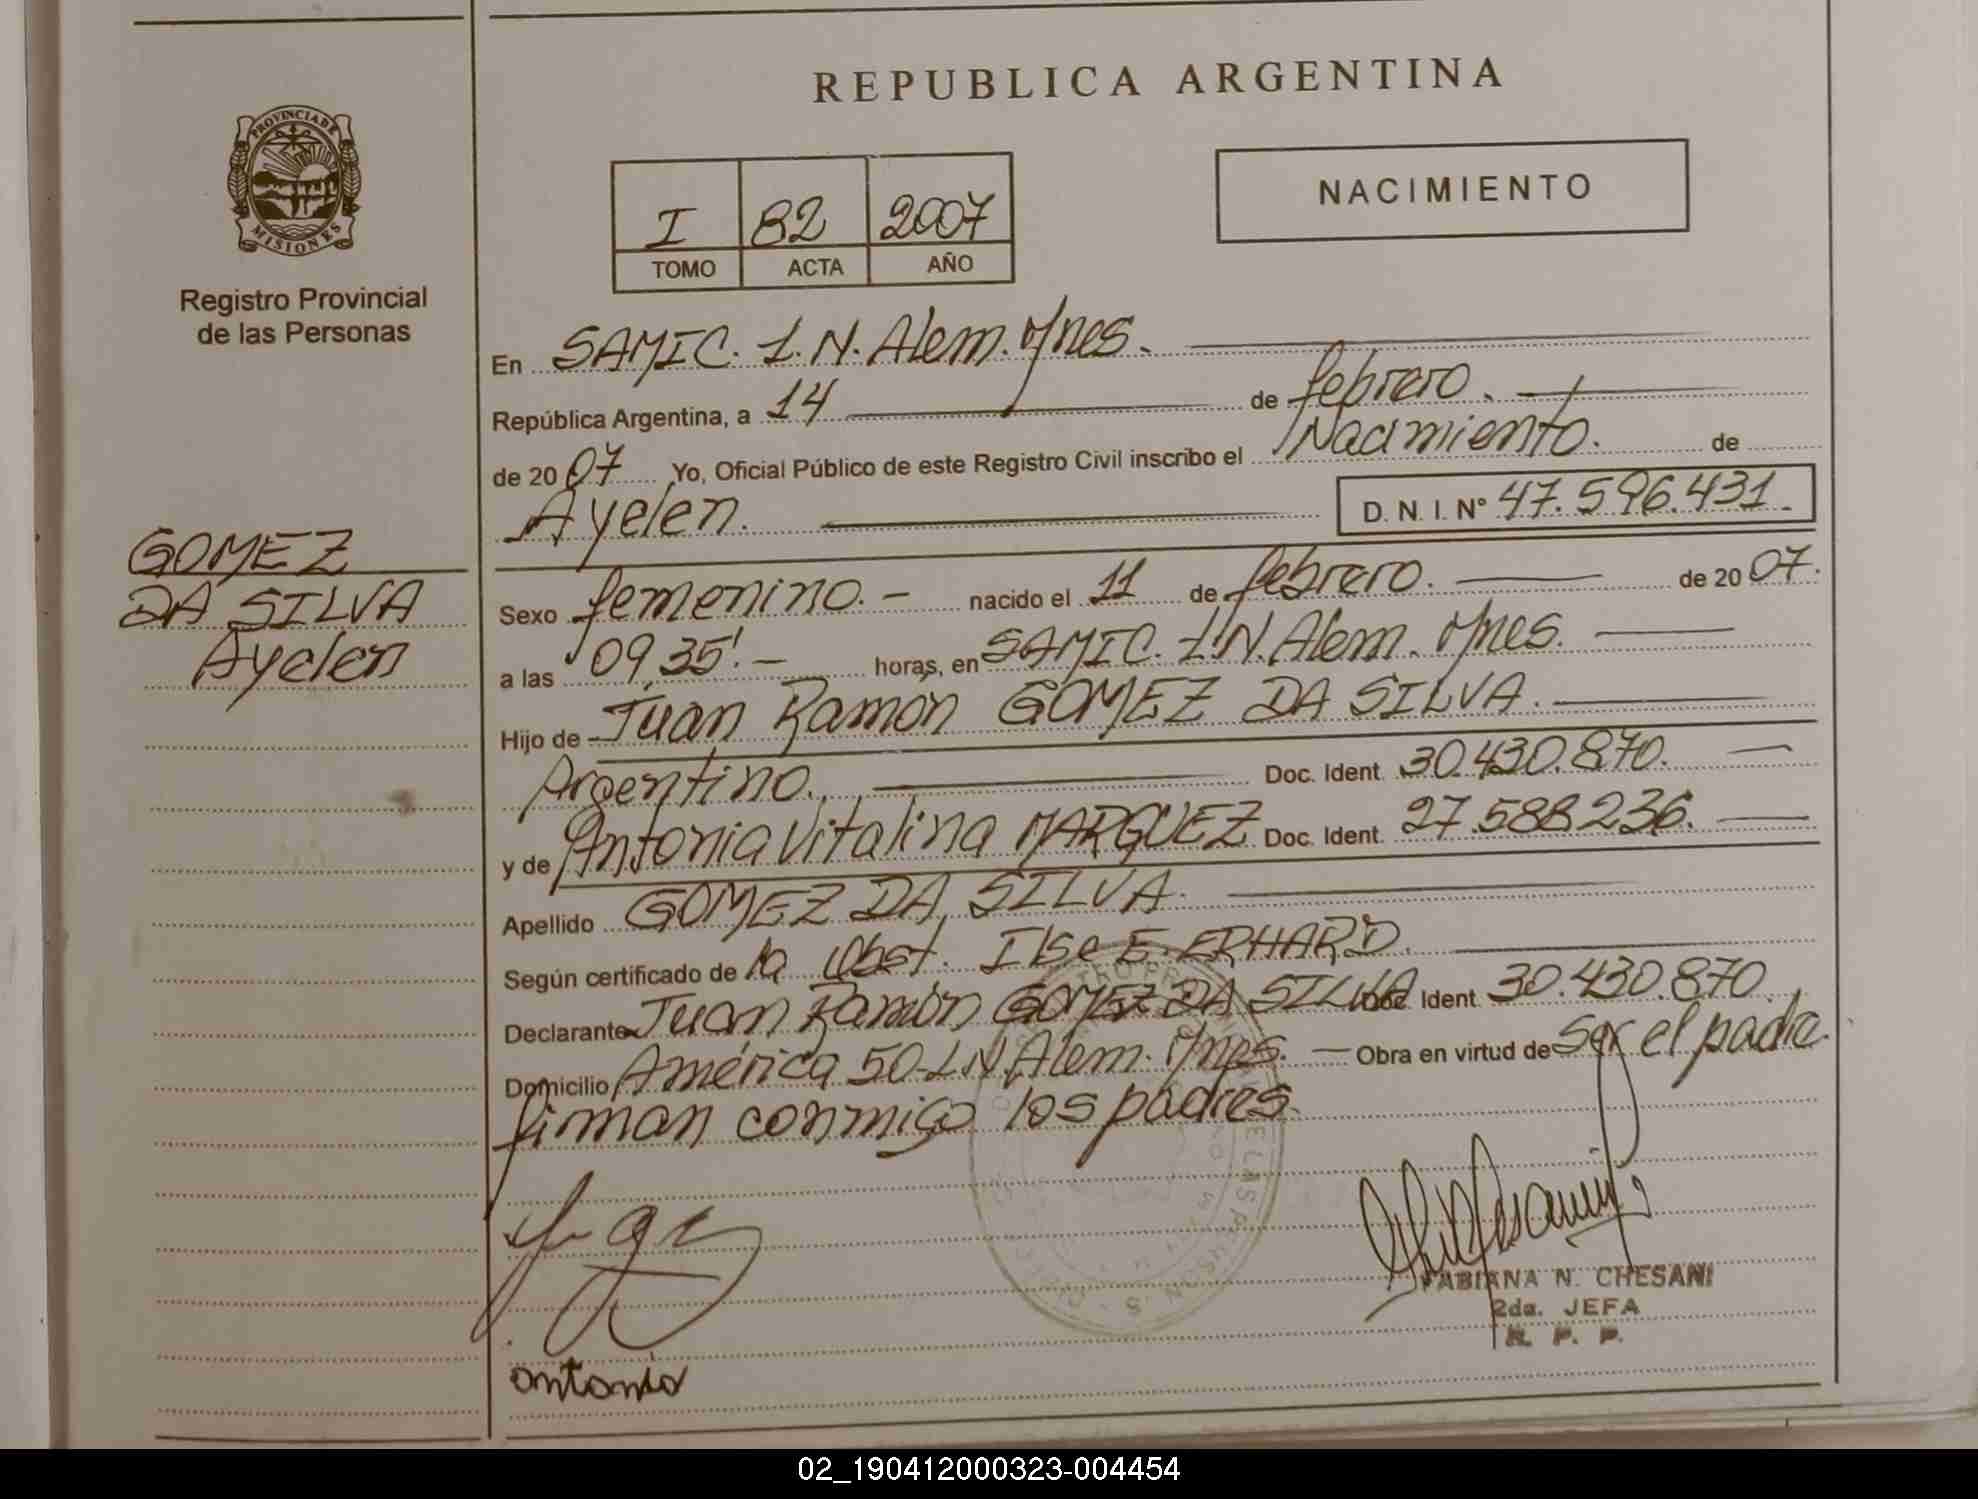 REPUBLICA ARGENTINA
PROVINCIA DE
MISIONES
Registro Provincial
de las Personas
I 82 2007
TOMO ACTA AÑO
NACIMIENTO
En SAMIC. L.N. Alem. Mnes.
República Argentina, a 14 de febrero.
de 2007 Yo, Oficial Público de este Registro Civil inscribo el Nacimiento. de
Ayelen. D. N. I. Nº 47.596.431
GOMEZ
DA SILVA
Ayelen
Sexo femenino. nacido el 11 de febrero. de 2007.
a las 09,35'. horas, en SAMIC. L.N. Alem. Mnes.
Hijo de Juan Ramón GOMEZ DA SILVA.
Argentino. Doc. Ident. 30.430.870.
y de Antonia Vitalina MARQUEZ Doc. Ident. 27.588.236.
Apellido GOMEZ DA SILVA.
Según certificado de la Obst. Ilse E. ERHARD.
Declarante Juan Ramón GOMEZ DA SILVA Doc. Ident. 30.430.870.
Domicilio América 50-L.N. Alem. Mnes. Obra en virtud de Ser el padre.
firman conmigo los padres.
antonia
FABIANA N. CHESANI
2da. JEFA
R. P. P.
02_190412000323-004454